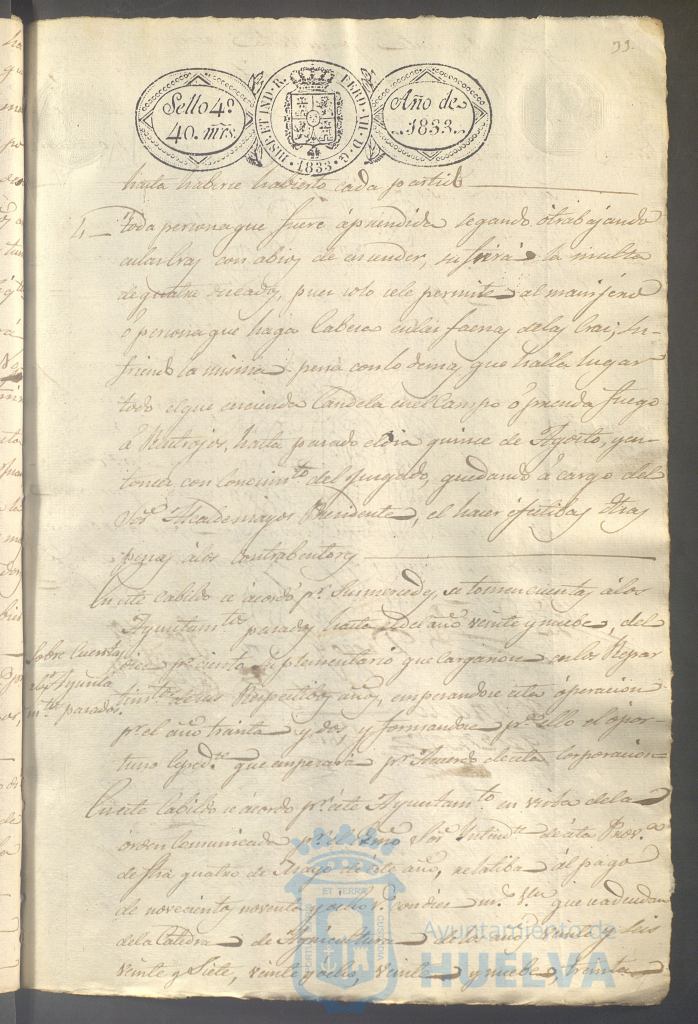 33.
Sello 4º
40. mrs.
HISP. ET IND. R. FERD. VII. D. G.
1833.
Año de
1833.
hasta haberse habierto cada partido
4 toda persona que fuere aprendida segando o trabajando
en las heras con abios de encender, sufrirá la multa
de quatro ducados, pues solo se le permite al manijero
o persona que haga cabeza en las faenas de las heras; su-
friendo la misma pena con lo demas que halla lugar
todo el que encienda Candela en el Campo o prenda fuego
a Rastrojos, hasta pasado el dia quince de Agosto, y en-
tonces con conocimto. del Juzgado, quedando a cargo del
Sor. Alcalde mayor Presidente, el hacer efectibas estas
penas a los contrabentores
En este Cabildo se acordó pr. sus mercedes se tomen cuentas a los
Ayuntamtos. pasados hasta el del año veinte y nuebe, del
Sobre Cuentas
a los Ayunta
mtos. pasados.
pr. ciento suplementario que cargaron en los Repar
timtos. de sus Respectibos años, empezandose esta operacion
pr. el año treinta y dos, y formandose pa. ello el opor-
tuno Espedte. que empezará pr. Acuerdo de esta Corporacion
En este Cabildo se acordó pr. este Ayuntamto. en virtud de la
orden Comunicada pr. el Sor. Intendte. de esta Prova.
de fha quatro de Mayo de este año, relatiba al pago
de novecientos noventa y ocho rs. con diez ms. vn. que se adeudan
de la Catedra de Agricultura de los años veinte y seis
veinte y Siete, veinte y ocho, veinte y nuebe, treinta
ET TERRAE
Ayuntamiento de
HUELVA